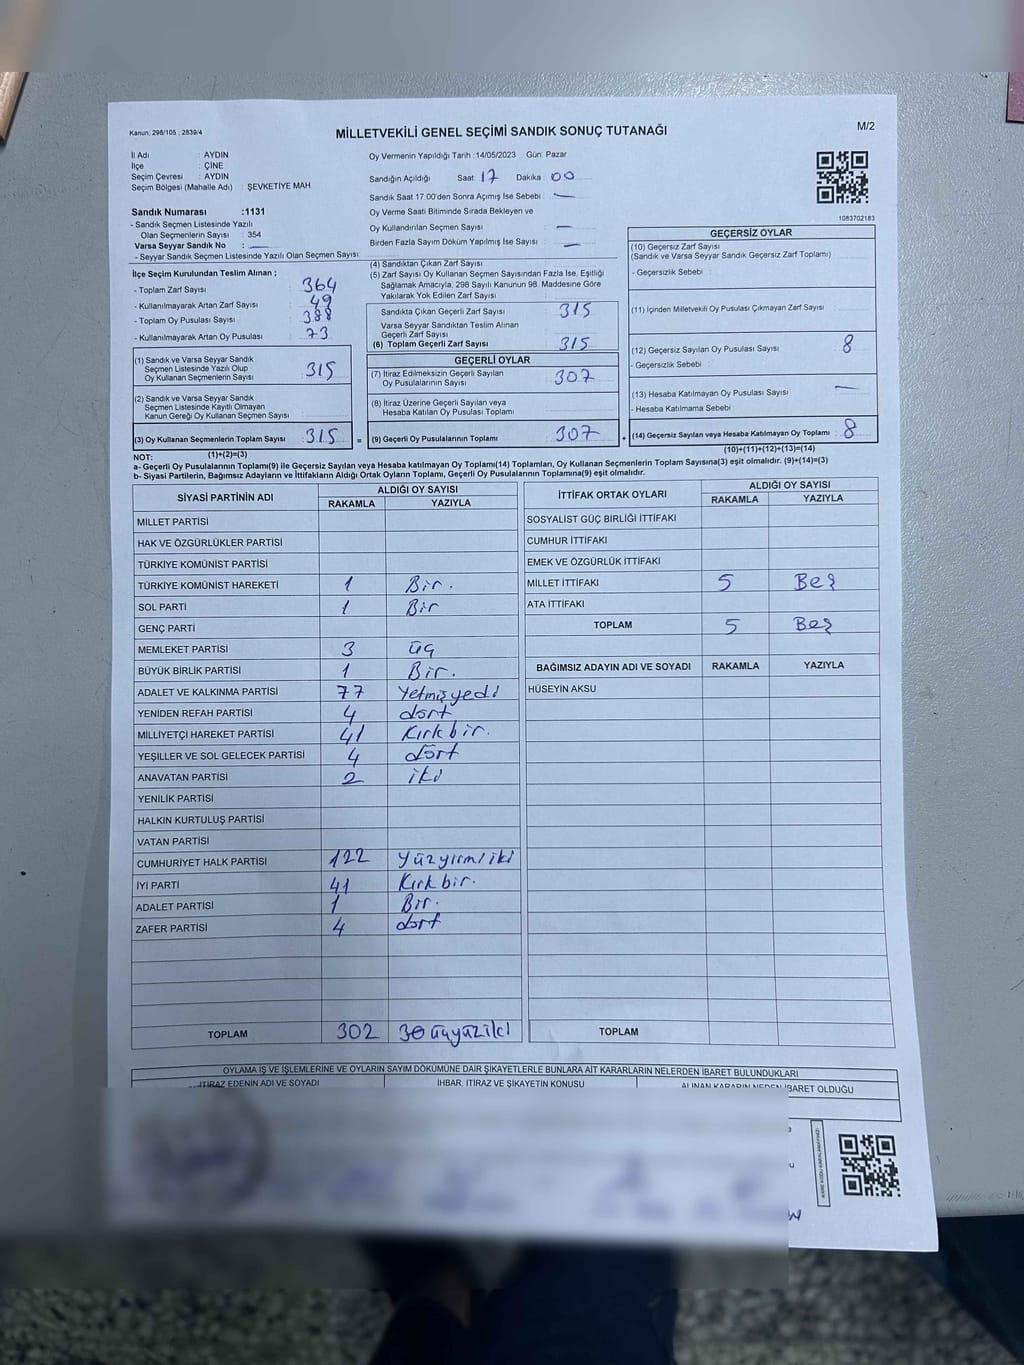 Kanun: 298/105 , 2839/4
MİLLETVEKİLİ GENEL SEÇİMİ SANDIK SONUÇ TUTANAĞI
M/2
İl Adı : AYDIN
İlçe : ÇİNE
Seçim Çevresi : AYDIN
Seçim Bölgesi (Mahalle Adı) : ŞEVKETİYE MAH
Sandık Numarası :1131
- Sandık Seçmen Listesinde Yazılı
Olan Seçmenlerin Sayısı : 354
Varsa Seyyar Sandık No : —
- Seyyar Sandık Seçmen Listesinde Yazılı Olan Seçmen Sayısı:
Oy Vermenin Yapıldığı Tarih :14/05/2023 Gün: Pazar
Sandığın Açıldığı Saat: 17 Dakika: 00
Sandık Saat 17.00'den Sonra Açımış İse Sebebi : —
Oy Verme Saati Bitiminde Sırada Bekleyen ve
Oy Kullandırılan Seçmen Sayısı : —
Birden Fazla Sayım Döküm Yapılmış İse Sayısı : —
1083702183
İlçe Seçim Kurulundan Teslim Alınan ;
- Toplam Zarf Sayısı : 364
- Kullanılmayarak Artan Zarf Sayısı : 49
- Toplam Oy Pusulası Sayısı : 388
- Kullanılmayarak Artan Oy Pusulası : 73
(1) Sandık ve Varsa Seyyar Sandık
Seçmen Listesinde Yazılı Olup
Oy Kullanan Seçmenlerin Sayısı : 315
(2) Sandık ve Varsa Seyyar Sandık
Seçmen Listesinde Kayıtlı Olmayan
Kanun Gereği Oy Kullanan Seçmen Sayısı :
(3) Oy Kullanan Seçmenlerin Toplam Sayısı : 315
(1)+(2)=(3)
(4) Sandıktan Çıkan Zarf Sayısı
(5) Zarf Sayısı Oy Kullanan Seçmen Sayısından Fazla İse, Eşitliği
Sağlamak Amacıyla, 298 Sayılı Kanunun 98. Maddesine Göre
Yakılarak Yok Edilen Zarf Sayısı :
Sandıkta Çıkan Geçerli Zarf Sayısı : 315
Varsa Seyyar Sandıktan Teslim Alınan
Geçerli Zarf Sayısı :
(6) Toplam Geçerli Zarf Sayısı : 315
GEÇERLİ OYLAR
(7) İtiraz Edilmeksizin Geçerli Sayılan
Oy Pusulalarının Sayısı : 307
(8) İtiraz Üzerine Geçerli Sayılan veya
Hesaba Katılan Oy Pusulası Toplamı :
= (9) Geçerli Oy Pusulalarının Toplamı : 307
GEÇERSİZ OYLAR
(10) Geçersiz Zarf Sayısı
(Sandık ve Varsa Seyyar Sandık Geçersiz Zarf Toplamı) :
- Geçersizlik Sebebi :
(11) İçinden Milletvekili Oy Pusulası Çıkmayan Zarf Sayısı :
(12) Geçersiz Sayılan Oy Pusulası Sayısı : 8
- Geçersizlik Sebebi :
(13) Hesaba Katılmayan Oy Pusulası Sayısı : —
- Hesaba Katılmama Sebebi :
+ (14) Geçersiz Sayılan veya Hesaba Katılmayan Oy Toplamı : 8
(10)+(11)+(12)+(13)=(14)
NOT:
a- Geçerli Oy Pusulalarının Toplamı(9) ile Geçersiz Sayılan veya Hesaba katılmayan Oy Toplamı(14) Toplamları, Oy Kullanan Seçmenlerin Toplam Sayısına(3) eşit olmalıdır. (9)+(14)=(3)
b- Siyasi Partilerin, Bağımsız Adayların ve İttifakların Aldığı Ortak Oyların Toplamı, Geçerli Oy Pusulalarının Toplamına(9) eşit olmalıdır.
SİYASİ PARTİNİN ADI ALDIĞI OY SAYISI
RAKAMLA YAZIYLA
MİLLET PARTİSİ
HAK VE ÖZGÜRLÜKLER PARTİSİ
TÜRKİYE KOMÜNİST PARTİSİ
TÜRKİYE KOMÜNİST HAREKETİ 1 Bir.
SOL PARTİ 1 Bir
GENÇ PARTİ
MEMLEKET PARTİSİ 3 üç
BÜYÜK BİRLİK PARTİSİ 1 Bir.
ADALET VE KALKINMA PARTİSİ 77 Yetmişyedi
YENİDEN REFAH PARTİSİ 4 dört
MİLLİYETÇİ HAREKET PARTİSİ 41 Kırkbir.
YEŞİLLER VE SOL GELECEK PARTİSİ 4 dört
ANAVATAN PARTİSİ 2 iki
YENİLİK PARTİSİ
HALKIN KURTULUŞ PARTİSİ
VATAN PARTİSİ
CUMHURİYET HALK PARTİSİ 122 Yüzyirmiiki
İYİ PARTİ 41 Kırkbir.
ADALET PARTİSİ 1 Bir.
ZAFER PARTİSİ 4 dört
TOPLAM 302 üçyüziki
İTTİFAK ORTAK OYLARI ALDIĞI OY SAYISI
RAKAMLA YAZIYLA
SOSYALİST GÜÇ BİRLİĞİ İTTİFAKI
CUMHUR İTTİFAKI
EMEK VE ÖZGÜRLÜK İTTİFAKI
MİLLET İTTİFAKI 5 Beş
ATA İTTİFAKI
TOPLAM 5 Beş
BAĞIMSIZ ADAYIN ADI VE SOYADI RAKAMLA YAZIYLA
HÜSEYİN AKSU
TOPLAM
OYLAMA İŞ VE İŞLEMLERİNE VE OYLARIN SAYIM DÖKÜMÜNE DAİR ŞİKAYETLERLE BUNLARA AİT KARARLARIN NELERDEN İBARET BULUNDUKLARI
İTİRAZ EDENİN ADI VE SOYADI
İHBAR, İTİRAZ VE ŞİKAYETİN KONUSU
ALINAN KARARIN NEDEN İBARET OLDUĞU